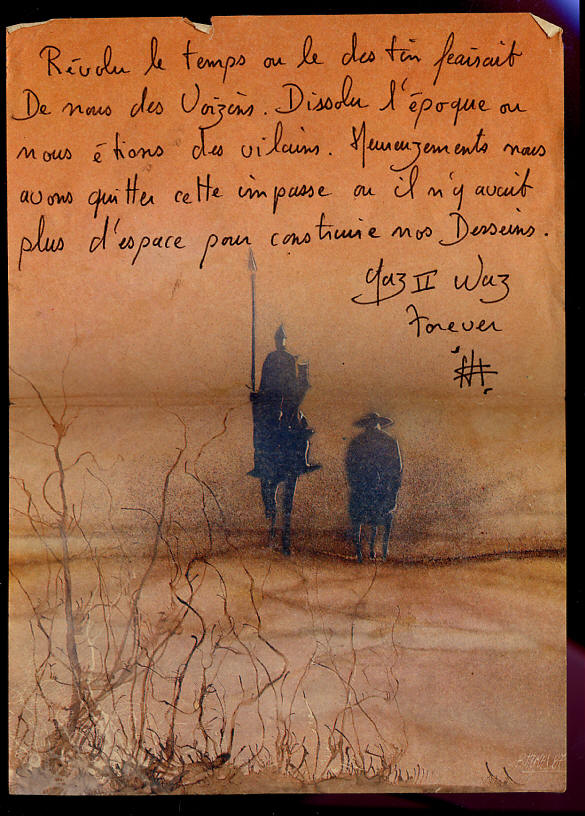 Révolu le temps ou le destin feaisait
De nous des Voizins. Dissolu l'époque ou
nous étions des vilains. Heureuzements nous
avons quitter cette impasse ou il n'y avait
plus d'espace pour construire nos Desseins.
II Waz
Forever